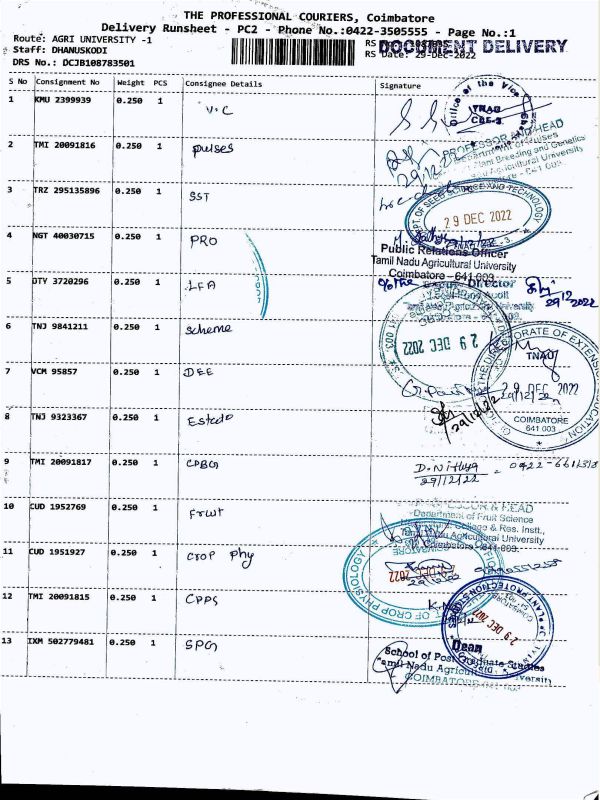 THE PROFESSIONAL COURIERS, Coimbatore
Delivery Runsheet - PC2 - Phone No.:0422-3505555 - Page No.:1
Route: AGRI UNIVERSITY -1
Staff: DHANUSKODI
DRS No.: DCJB108783501
RS
DOCUMENT DELIVERY
RS Date: 29-Dec-2022
S No Consignment No Weight PCS Consignee Details Signature
1 KMU 2399939 0.250 1 V.C
Office of the Vice
TNAU
CBE-3
2 TMI 20091816 0.250 1 pulses
PROFESSOR AND HEAD
Department of Pulses
Plant Breeding and Genetics
Agricultural University
29/12
3 TRZ 295135896 0.250 1 SST
DEPT. OF SEED SCIENCE AND TECHNOLOGY
29 DEC 2022
4 NGT 40030715 0.250 1 PRO
Public Relations Officer
Tamil Nadu Agricultural University
Coimbatore - 641 003
5 DTY 3720296 0.250 1 LFA
O/o the
Director
29/12/2022
6 TNJ 9841211 0.250 1 scheme
29 DEC 2022
DIRECTORATE OF EXTENSION EDUCATION
TNAU
7 VCM 95857 0.250 1 DEE
29 DEC 2022
COIMBATORE
641 003
8 TNJ 9323367 0.250 1 Estate
29/12/22
9 TMI 20091817 0.250 1 CPBG
D. Nithya
29/12/22
10 CUD 1952769 0.250 1 Fruit
PROFESSOR & HEAD
Department of Fruit Science
College & Res. Instt.,
Tamil Nadu Agricultural University
Coimbatore - 641 003.
11 CUD 1951927 0.250 1 crop phy
OF CROP PHYSIOLOGY
COIMBATORE
DEC 2022
12 TMI 20091815 0.250 1 CPPS
PLANT PROTECTION STUDIES
29 DEC 2022
13 IXM 502779481 0.250 1 SPG
Dean
School of Post Graduate Studies
Tamil Nadu Agricultural University
COIMBATORE